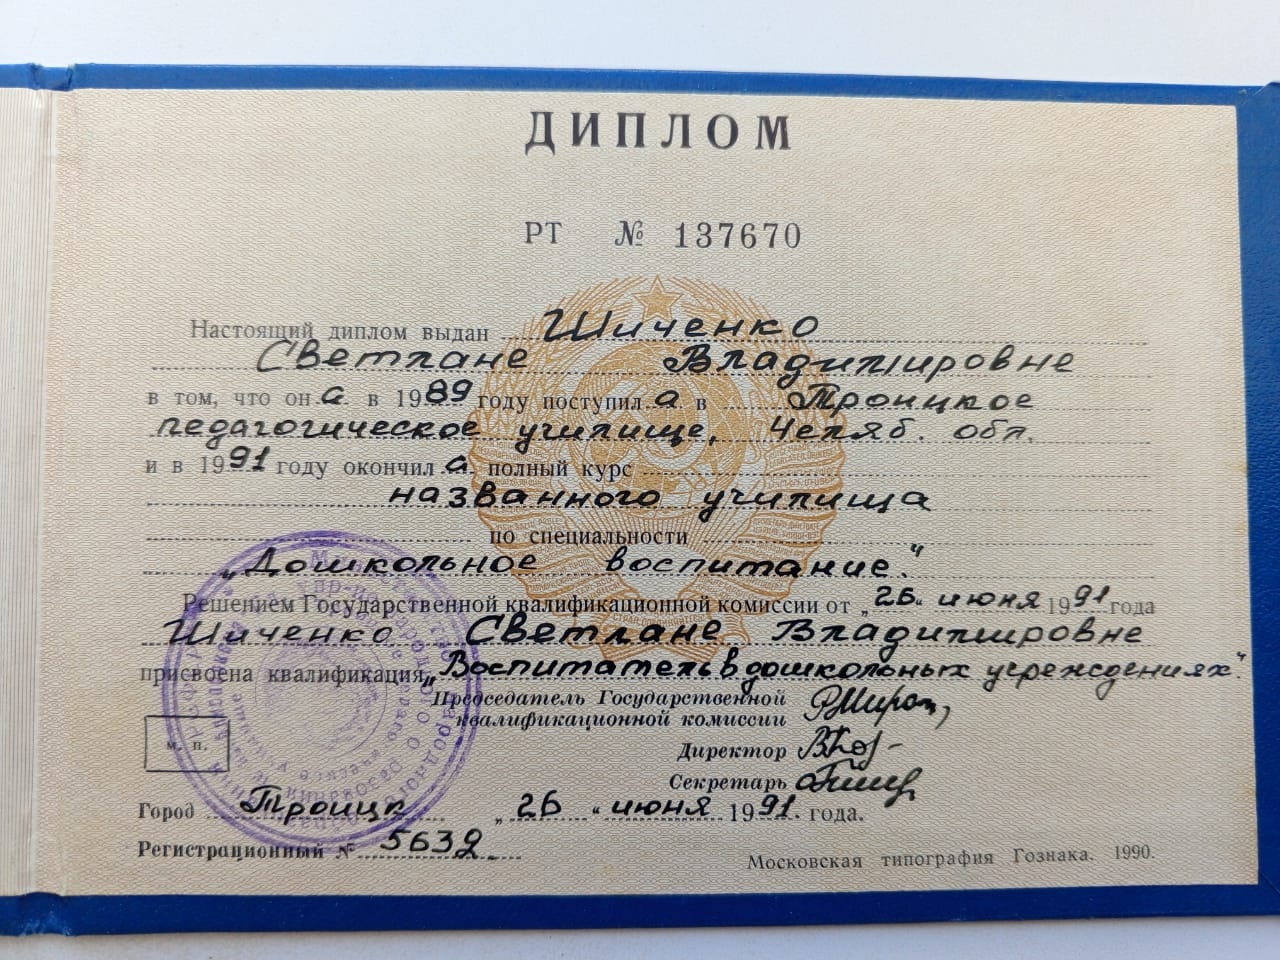 ДИПЛОМ
РТ № 137670
Настоящий диплом выдан Шиченко
Светлане Владимировне
в том, что он а в 1989 году поступил а в Троицкое
педагогическое училище, Челяб. обл.
и в 1991 году окончил а полный курс
названного училища
по специальности
„Дошкольное воспитание."
Решением Государственной квалификационной комиссии от „26" июня 1991 года
Шиченко Светлане Владимировне
присвоена квалификация „Воспитатель в дошкольных учреждениях."
Председатель Государственной
квалификационной комиссии
Директор
Секретарь
м. п.
Город Троицк „26" июня 1991. года.
Регистрационный № 5632.
Московская типография Гознака. 1990.